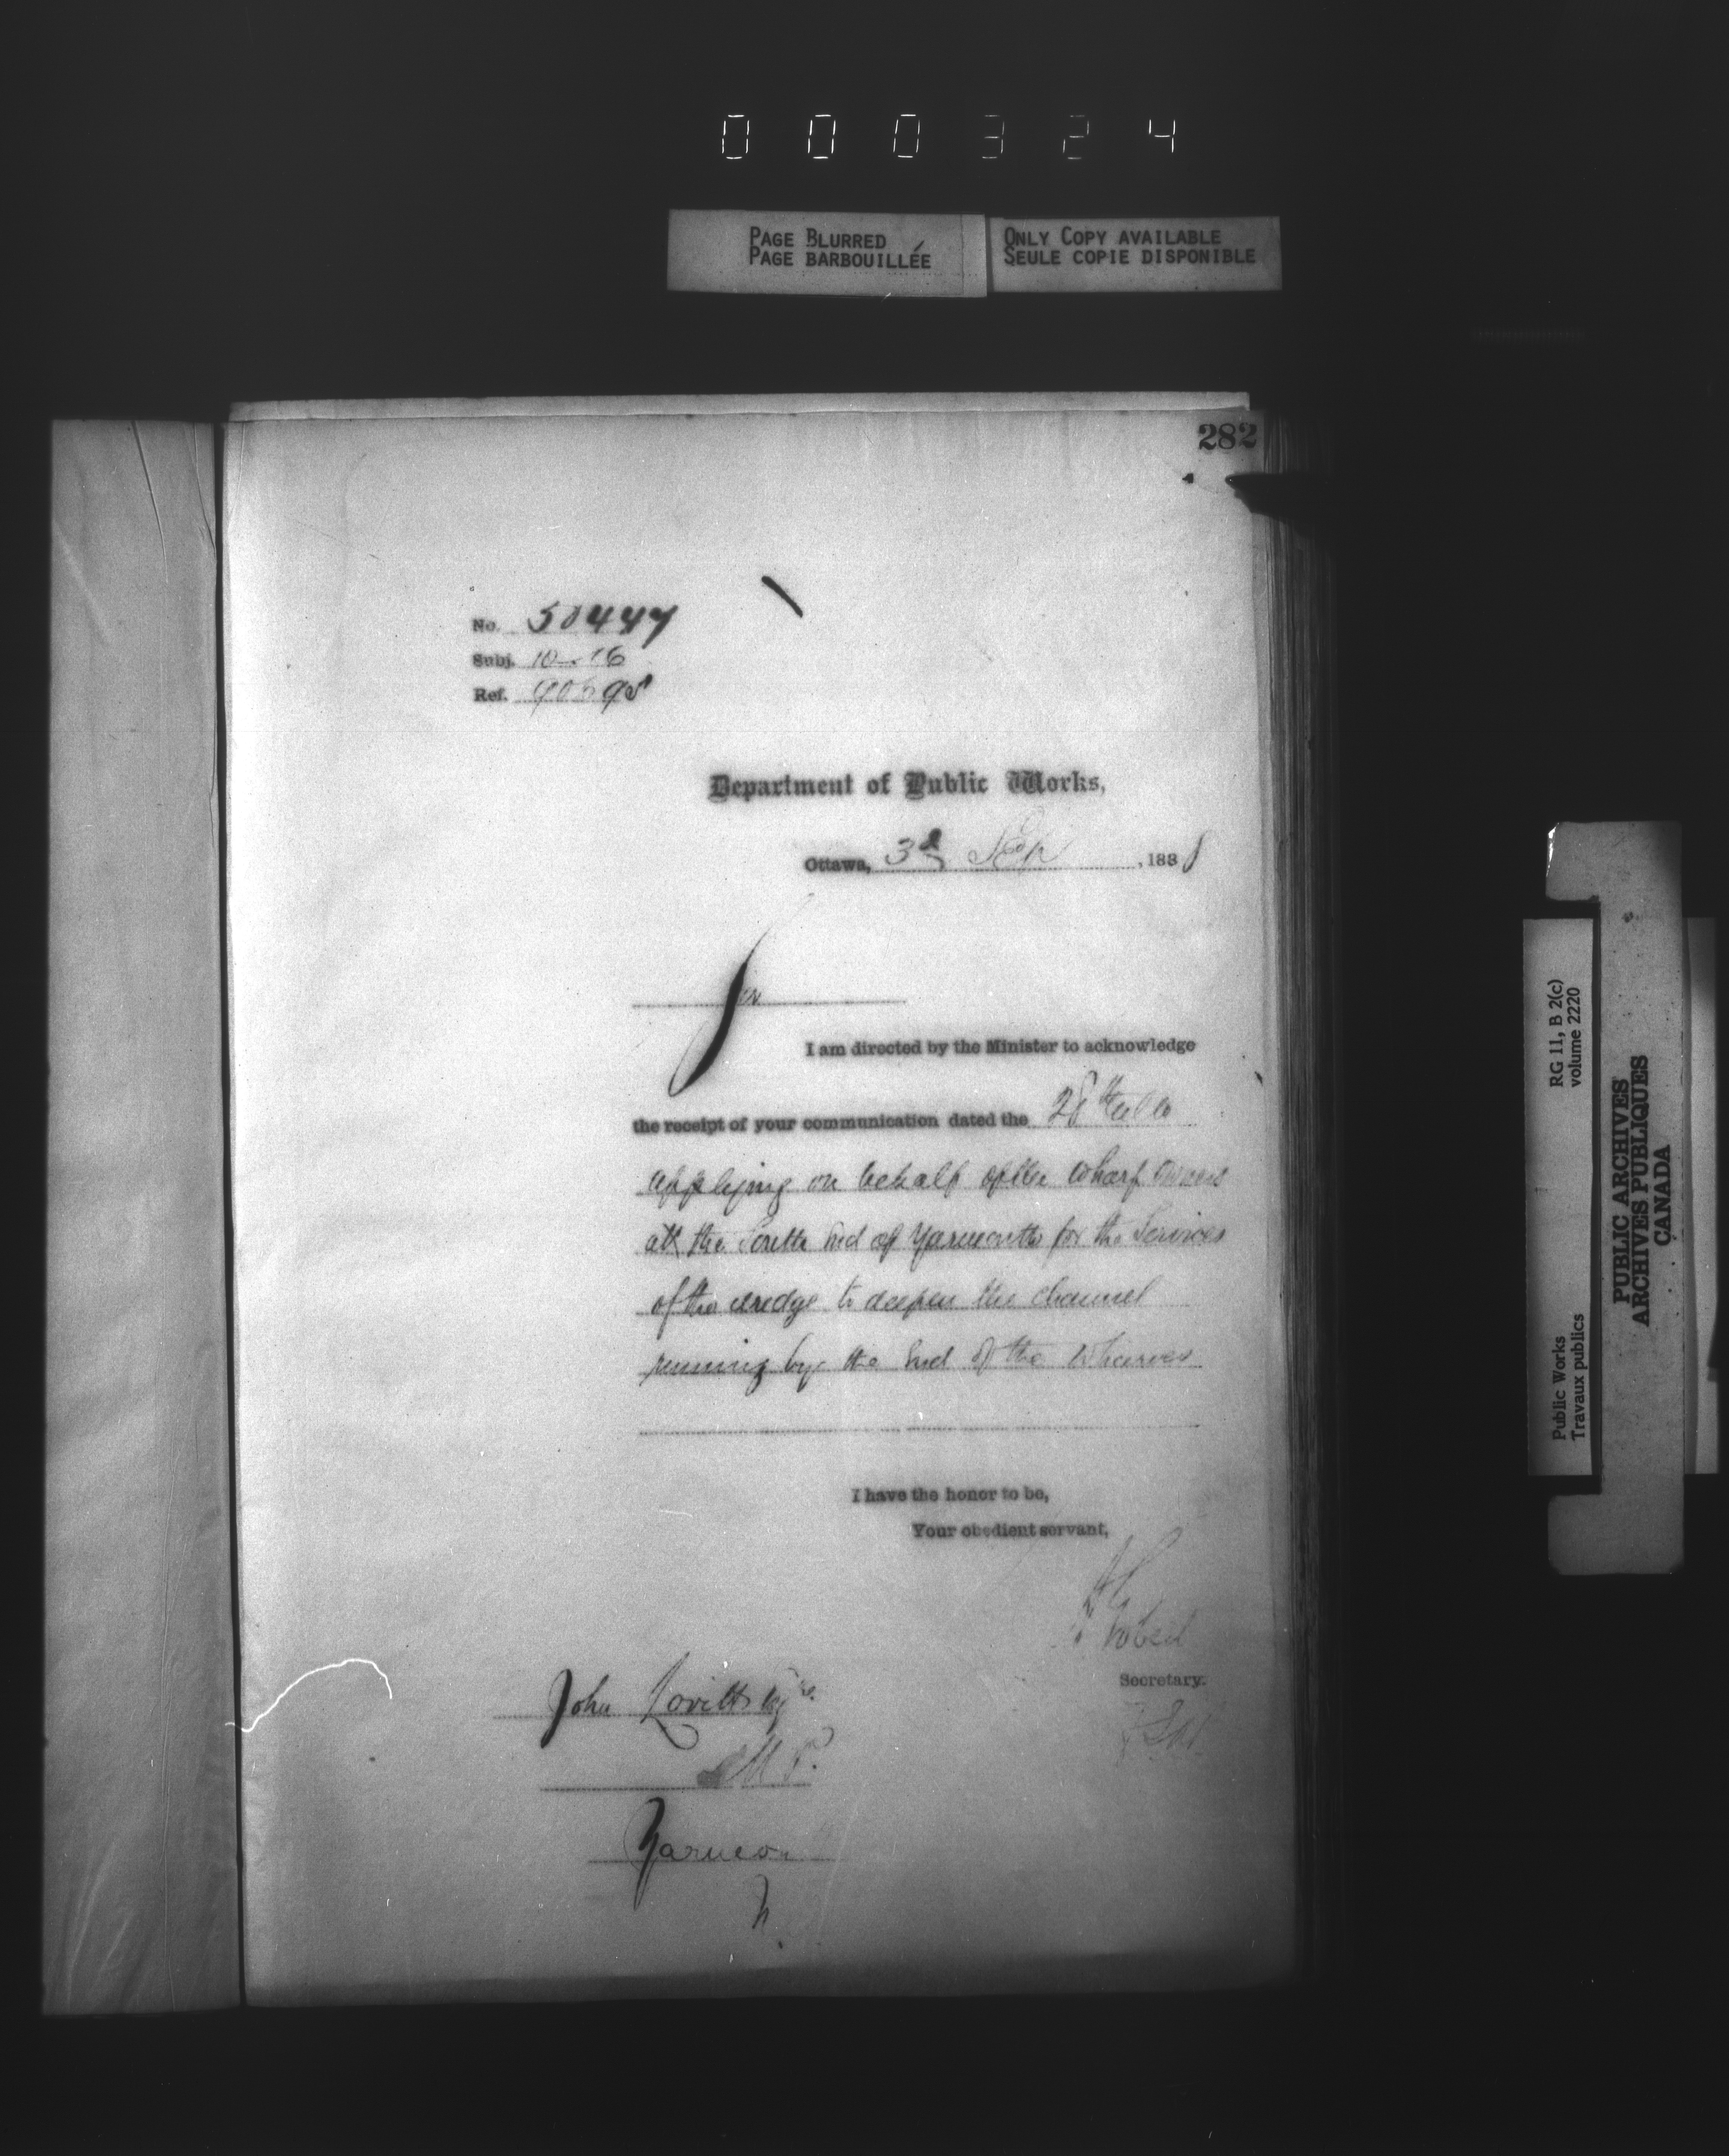 000324
PAGE BLURRED
PAGE BARBOUILLÉE
ONLY COPY AVAILABLE
SEULE COPIE DISPONIBLE
282
No. 50447
Subj. 10-16
Ref.
Department of Public Works,
Ottawa, 3d Sep, 1888
Sir
I am directed by the Minister to acknowledge
the receipt of your communication dated the 28th ulto
applying on behalf of the wharf owners
at the South End of Yarmouth for the Services
of the dredge to deepen the channel
running by the End of the wharves
I have the honor to be,
Your obedient servant,
A Gobeil
Secretary.
John Lovitt Esqre.
M. P.
Yarmou
N
RG 11, B 2(c)
volume 2220
Public Works
Travaux publics
PUBLIC ARCHIVES
ARCHIVES PUBLIQUES
CANADA